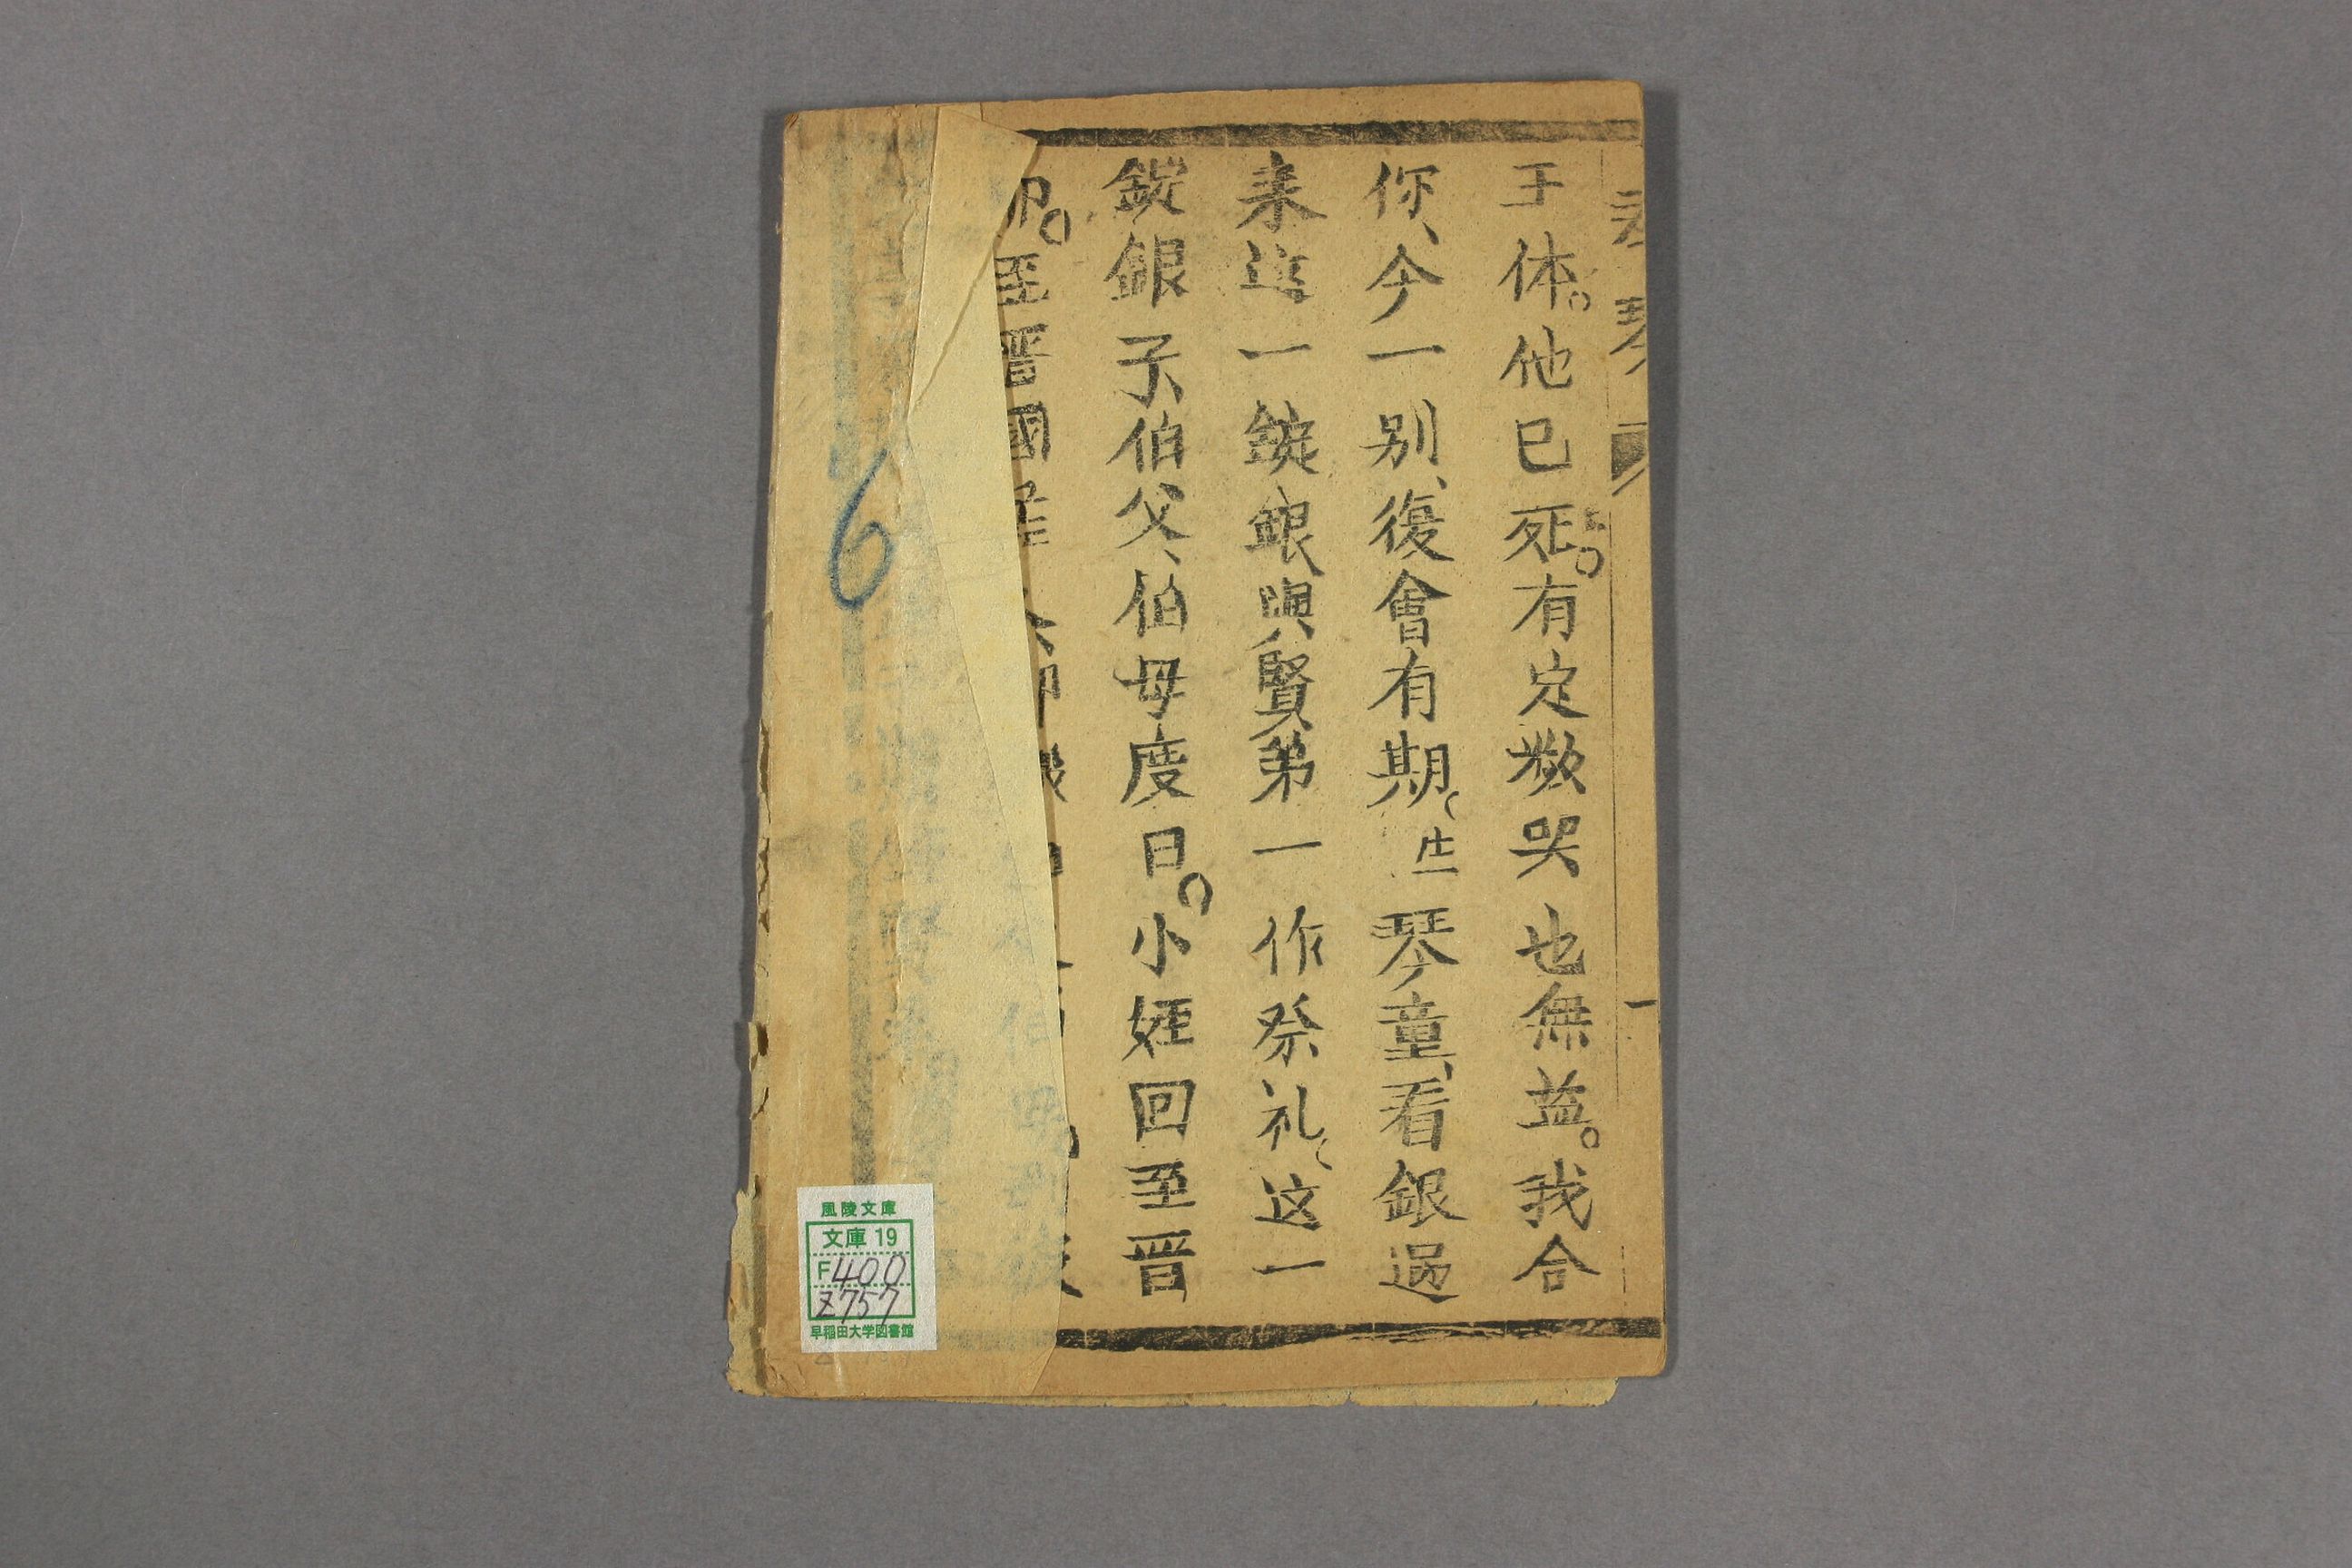 于体。他已死。有定数哭也無益。我合
你、今一别、復會有期、生琴童、看銀過
来這一錠銀與賢弟一作祭礼、这一
錠銀子、伯父、伯母度日。小姪回至晋
至晋國
6
風陵文庫
文庫 19
F400
Z757
早稲田大学図書館